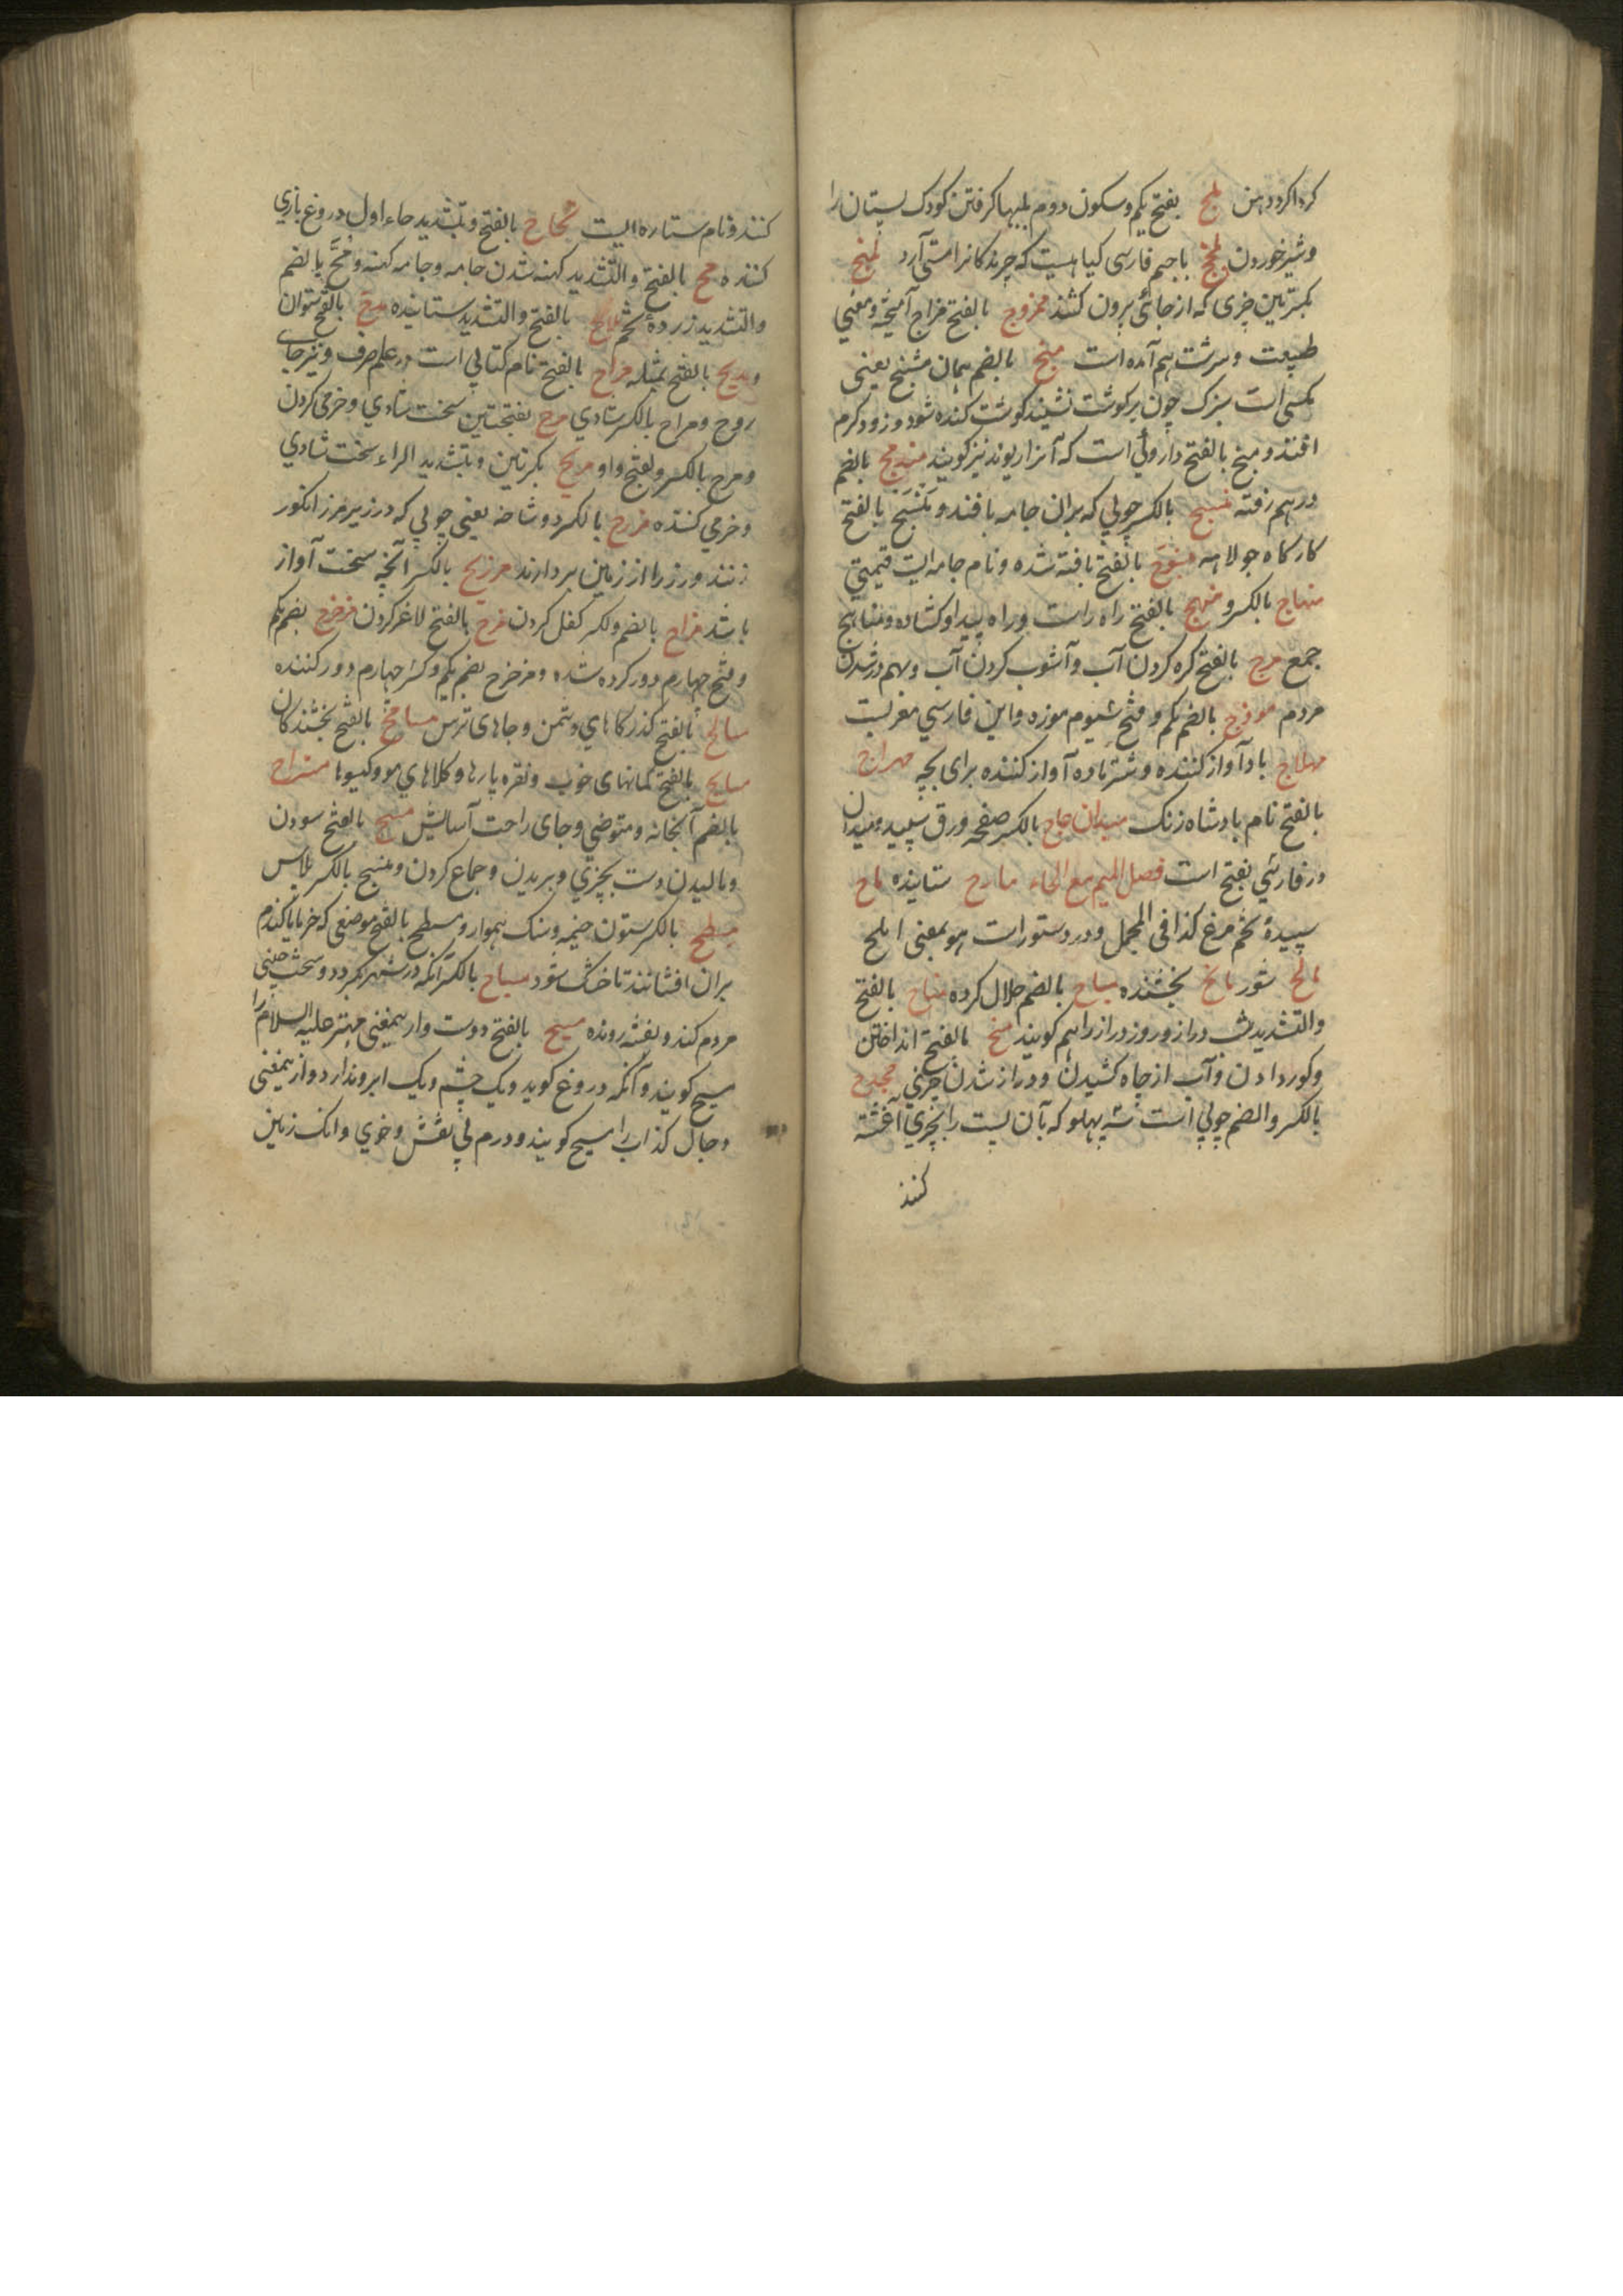 کرداکرد دهن لمج بفتح یکم و سکون دوم بلبها کرفتن کودک پستان را
و شیر خوردن باجیم فارسی کیاهیست که چرندکانرا مستی آرد
بکسرتین چیزی که از جائی برون کشند ممزوج بالفتح مزاج آمیخته و بمعنی
طبیعت و سرشت هم آمده است منج بالضم همان مشنج یعنی
مکسی است بزرک چون بر کوشت نشیند کوشت کنده شود و زود کرم
افتد و منج بالفتح داروئی است که آنرا ریوند نیز کویند مندمج بالضم
درهم رفته منسج بالکسر چوبی که بران جامه بافند و منسج بالفتح
کارکاه جولاهه منسوج بالفتح بافته شده و نام جامه ایست قیمتی
منهاج بالکسر و منهج بالفتح راه راست و راه پیدا و کشاده و مناهج
جمع مرج بالفتح کره کردن آب و آشوب کردن آب و بهم در شدن
مردم موزج بالضم یکم و فتح سیوم موزه و این فارسی معربست
مهداج باد آواز کننده و شتر ماده آواز کننده برای بچه مهراج
بالفتح نام بادشاه زنک میدان عاج بالکسر صفحه ورق سپید و میدان
در فارسی بفتح است فصل المیم مع الحاء مادح ستاینده ماح
سپیدهٔ تخم مرغ کذا فی المجمل و در دستور است هو بمعنی املح
مالح شور مانح بخشنده مباح بالضم حلال کرده متاح بالفتح
والتشدید شب دراز و روز دراز را هم کویند متح بالفتح انداختن
و کور دادن و آب از چاه کشیدن و دراز شدن چیزی مجدح
بالکسر والضم چوبی است سه پهلو که بآن پست را بچیزی آغشته
کنند
کنند و نام ستاره ایست محاح بالفتح و بتشدید حاء اول دروغ بازی
کننده مح بالفتح والتشدید کهنه شدن جامه و جامه کهنه و مح بالضم
والتشدید زردهٔ تخم بالفتح والتشدید ستاینده مدح بالفتح ستودن
و مدیح بالفتح مثله مراح بالفتح نام کتابی است در علم صرف و نیز جای
روح و مراح بالکسر شادی مرح بفتحتین سخت شادی و خرمی کردن
و مرح بالکسر و بفتح واو مریح بکسرتین و بتشدید الراء سخت شادی
و خرمی کننده بالکسر دو شاخه یعنی چوبی که در زیر مرز انکور
زنند و رز را از زمین بردارند مرزیح بالکسر آنچه سخت آواز
باشد مزاح بالضم والکسر کفل کردن مزح بالفتح لاغ کردن مزحزح بضم یکم
و فتح چهارم دور کرده شده و مزحزح بضم یکم و کسر چهارم دور کننده
مسالح بالفتح کذرکاهای دشمن و جاهای ترس مسامح بالفتح بخشندکان
مسایح بالفتح کمانهای خوب و نقره پارها و کلاهای مو و کیسوها مستراح
بالضم آبخانه و متوضی و جای راحت آسایش مسح بالفتح سودن
و مالیدن دست بچیزی و بریدن و جماع کردن و مسح بالکسر پلاس
مسطح بالکسر ستون خیمه و سنک هموار و مسطح بالفتح موضعی که خرما یا کندم
بران افشانند تا خشک شود مسیاح بالکسر آنکه در شهر بکردد و سخن چینی
مردم کند و بفتنه رونده مسیح بالفتح دوست و از یمعنی مهتر علیه السلام را
مسیح کویند و آنکه دروغ کوید و یک چشم و یک ابرو ندارد و ازیمعنی
دجال کذاب را مسیح کویند و درم بی نقش و خوی و انک زمین